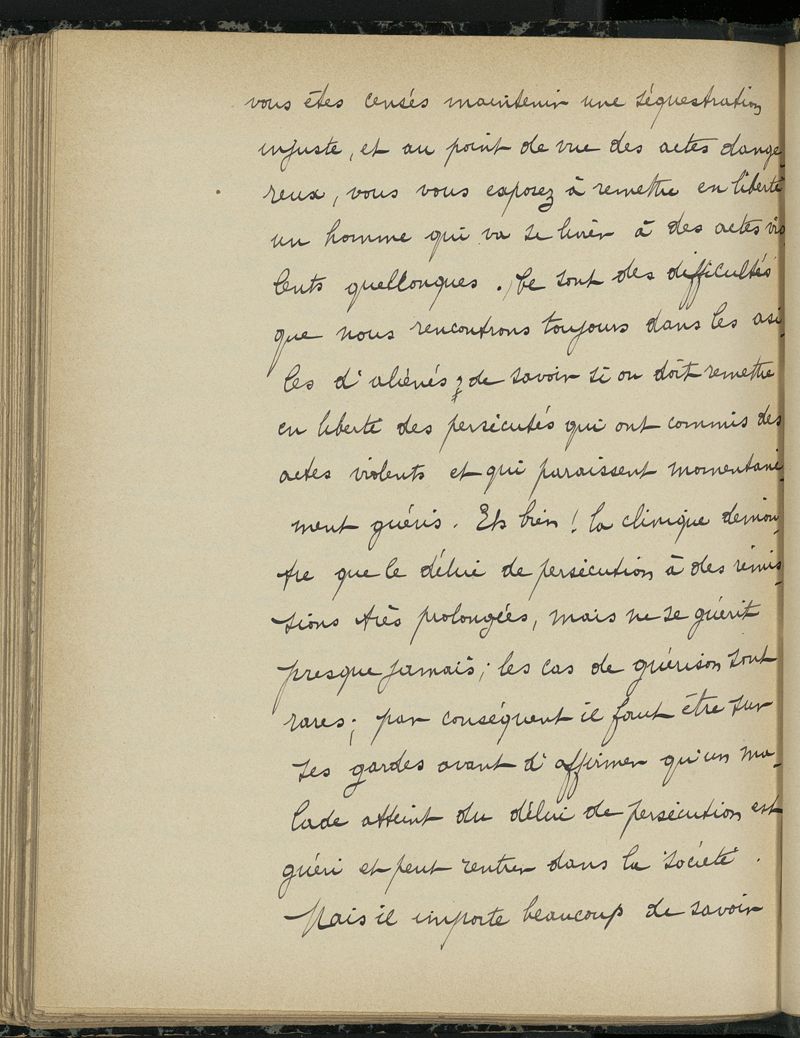 vous êtes censés maintenir une séquestration
injuste, et au point de vue des actes dange-
reux, vous vous exposez à remettre en liberté
un homme qui va se livrer à des actes vio-
lents quelconques. Ce sont des difficultés
que nous rencontrons toujours dans les asi-
les d'aliénés ; de savoir si on doit remettre
en liberté des persécutés qui ont commis des
actes violents et qui paraissent momentané-
ment guéris. Eh bien ! la clinique démon-
tre que le délire de persécution à des rémis-
sions très prolongées, mais ne se guérit
presque jamais ; les cas de guérison sont
rares ; par conséquent il faut être sur
ses gardes avant d'affirmer qu'un ma-
lade atteint du délire de persécution est
guéri et peut rentrer dans la société.
Mais il importe beaucoup de savoir